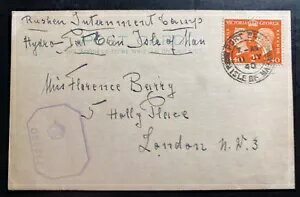 Rushen Internment Camp
Hydro Port Erin Isle of Man
Miss Florence Barry
5 Holly Place
London N.W.3
VICTORIA GEORGE
40
PORT ERIN
40
ISLE OF MAN